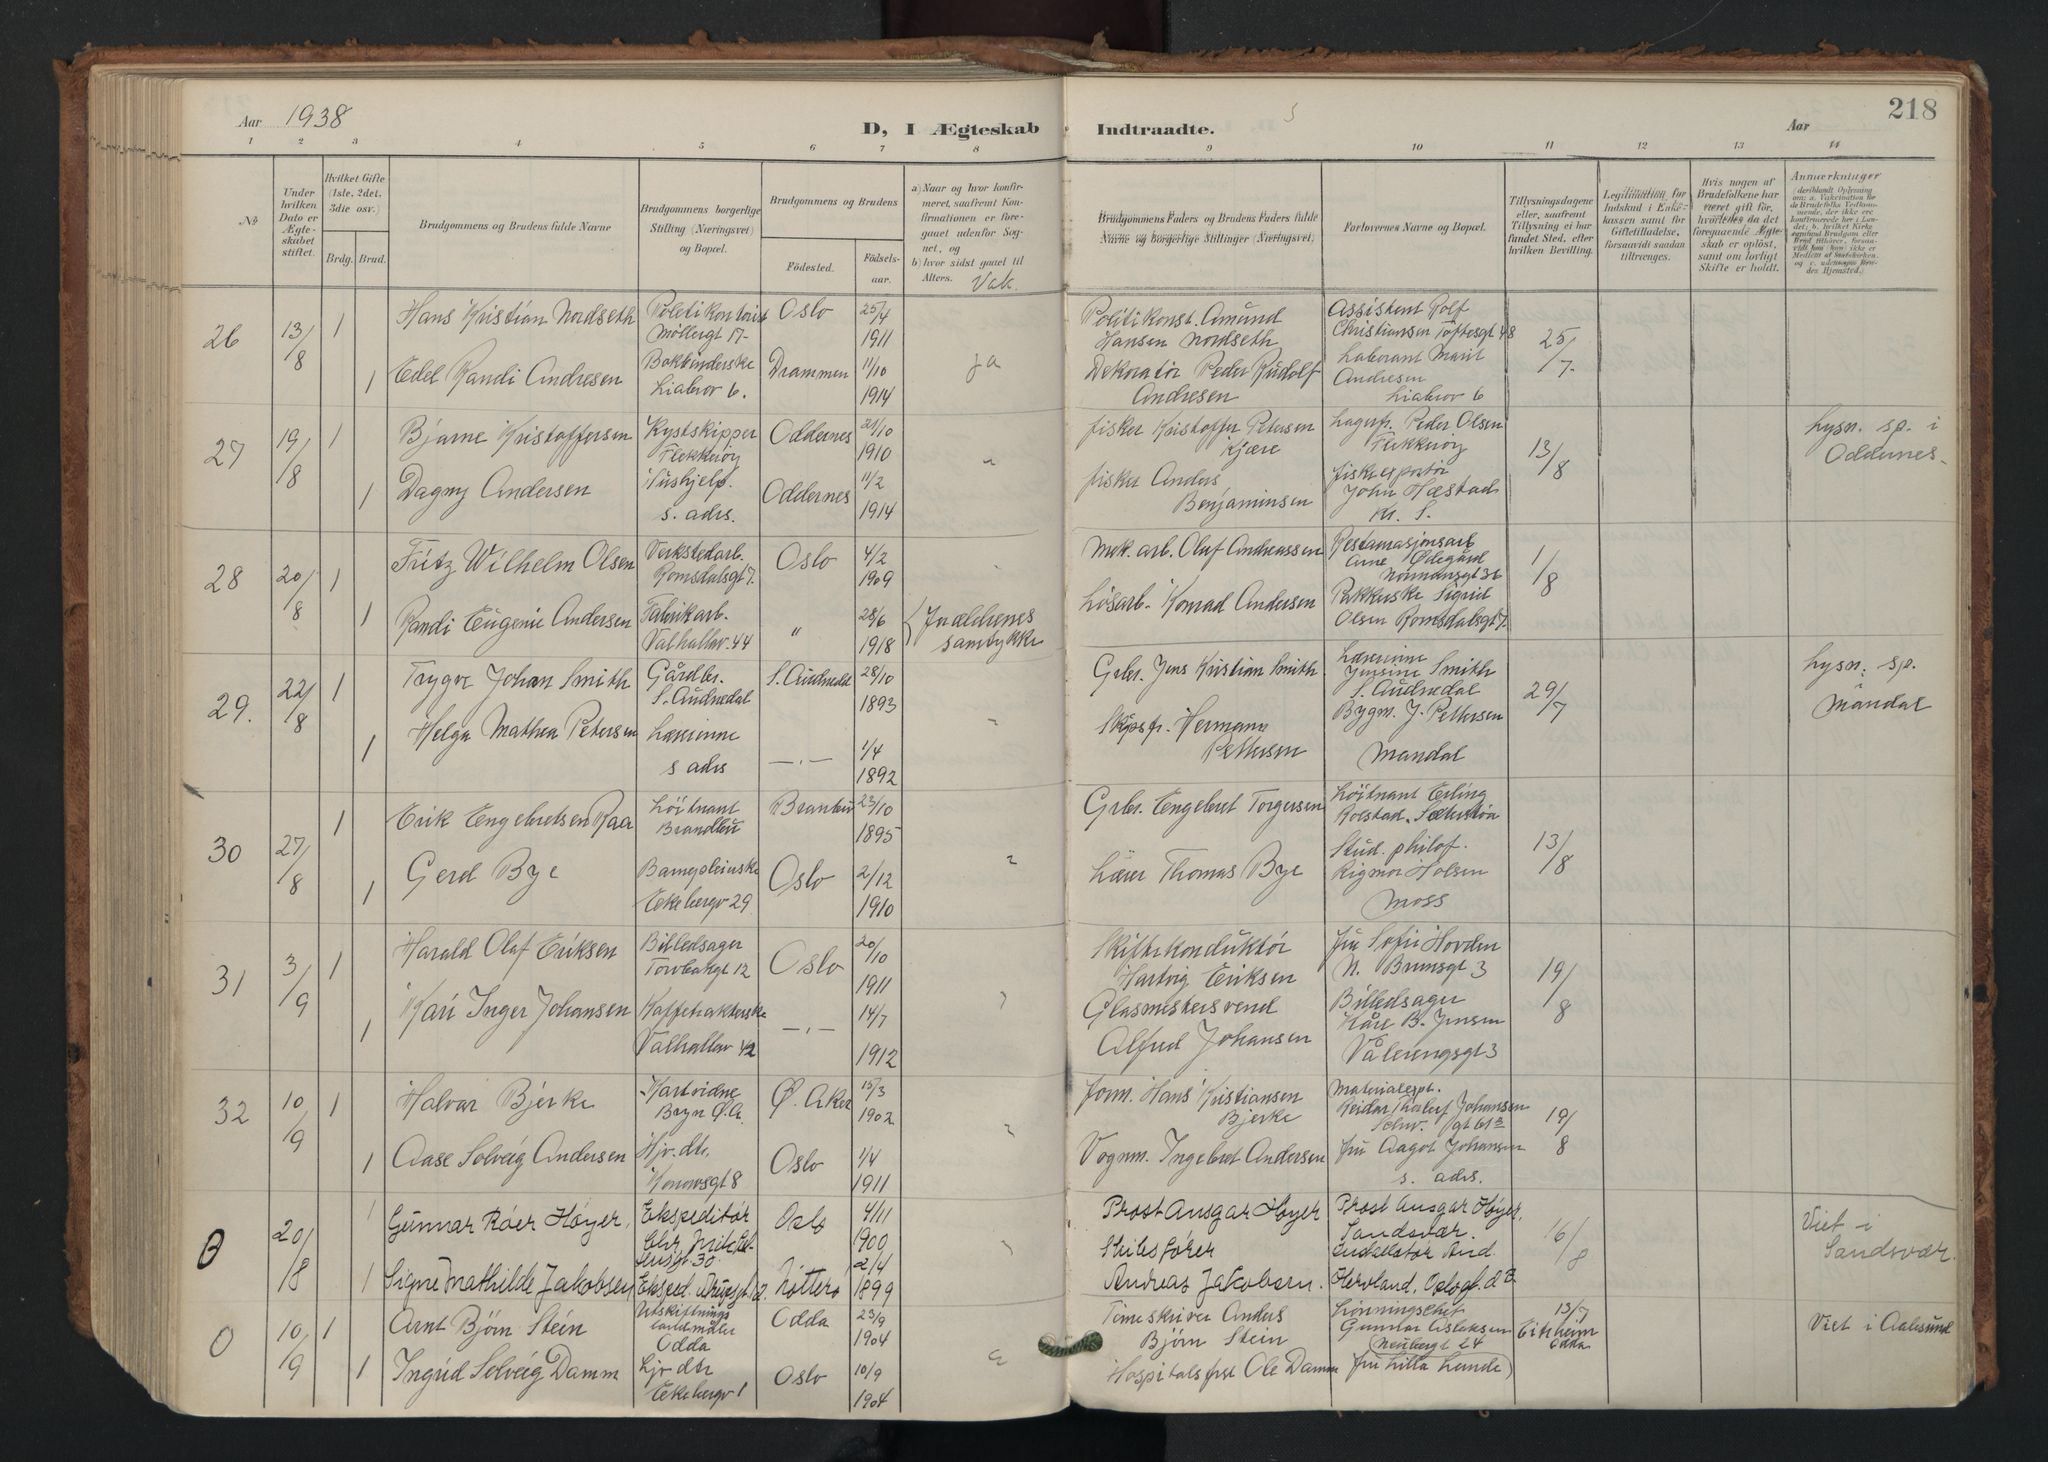 218
Aar 1938
D, I Ægteskab Indtraadte.
Aar
1 2 3 4 5 6 7 8 9 10 11 12 13 14
№
Under hvilken Dato er Ægteskabet stiftet.
Hvilket Gifte (1ste, 2det, 3die osv.)
Brdg. Brud.
Brudgommens og Brudens fulde Navne
Brudgommens borgerlige Stilling (Næringsvei) og Bopæl.
Brudgommens og Brudens
Födested.
Födselsaar.
a) Naar og hvor konfirmeret, saafremt Konfirmationen er foregaaet udenfor Sognet, og
b) hvor sidst gaaet til Alters.
Vak.
Brudgommens Faders og Brudens Faders fulde Navne og borgerlige Stillinger (Næringsvei)
Forlovernes Navne og Bopæl.
Tillysningsdagene eller, saafremt Tillysning ei har fundet Sted, efter hvilken Bevilling.
Legitimation for Indskud i Enkekassen samt for Giftetilladelse, forsaavidt saadan tiltrænges.
Hvis nogen af Brudefolkene har været gift för, hvorledes da det foregaaende Ægteskab er oplöst, samt om lovligt Skifte er holdt.
Anmærkninger
26 13/8 1 Hans Kristian Nordseth Oslo 25/4 1911
Møllergt 17
Politikonst. Amund Hansen Nordseth
Assistent Rolf Christiansen Toftesgt 48
25/7
1 Edel Randi Andresen
Liabrov 6.
Drammen 11/10 1914
ja
Dekoratør Peder Rudolf Andresen
Laborant Marit Andresen Liabrov 6
27 19/8 1 Bjarne Kristoffersen Kystskipper Flekkerøy Oddernes 21/10 1910
fisker Kristoffer Petersen Kjære
Peder Olsen Flekkerøy
13/8
Lysn. sp. i Oddernes
1 Dagny Andersen Hushjelp. s. adrs. Oddernes 11/2 1914
fisker Anders Benjaminsen
fiskeexportør John Hæstad Kr. S.
28 20/8 1 Fritz Wilhelm Olsen Verkstedarb. Romsdalsgt 7. Oslo 4/2 1909
Mek. arb. Olaf Andreassen
Arne Ødegård Normannsgt 36
1/8
1 Randi Eugenie Andersen Fabrikarb. Valhallav. 44 " 28/6 1918
Foreldrenes samtykke
Løsarb. Konrad Andersen
Pakkerske Sigrid Olsen Romsdalsgt 7.
29. 22/8 1 Trygve Johan Smith Gårdbr. S. Audnedal S. Audnedal 28/10 1893
Grbr. Jens Kristian Smith
Lærerinne Jensine Smith S. Audnedal
29/7
Lysn. sp. Mandal
1 Helga Mathea Petersen Lærerinne s adrs —.— 1/4 1892
Skipsf. Hermann Pettersen
Bygm. J. Pettersen Mandal
30 27/8 1 Erik Engebretsen Raa Løitnant Brandbu Branbu 23/10 1895
Grbr. Engebret Torgersen
Løitnant Erling Rolstad.
13/8
1 Gerd Bye
Ekebergv 29
Oslo 2/12 1910
Lærer Thomas Bye
Stud. philol. Rigmor Holsen Moss
31 3/9 1 Harald Olaf Eriksen Billedsager Torvbakgt 12 Oslo 20/10 1911
Skiftekonduktør Hartvig Eriksen
fru Sofie Hovden N. Brunsgt 3
19/8
1 Kari Inger Johansen Kaffetrakterske Valhallav 42 —.— 14/7 1912
Glasmestersvend Alfred Johansen
Billedsager Kåre B. Jensen Vålerengsgt 3
32 10/9 1 Halvar Bjerke
Bryn Ø. A. Ø. Aker 15/3 1902
Form. Hans Kristiansen Bjerke
Materialexp. Reidar Thorleif Johansen
19/8
1 Aase Solveig Andersen Hj. dtr. Konowsgt 8 Oslo 1/4 1911
Vognm. Ingebret Andersen
fru Aagot Johansen s. adrs.
0 20/8 1 Gunnar Róer Høyer, Ekspeditør Oslo 4/11 1900
Prost Ansgar Høyer
Prost Ansgar Høyer, Sandsvær.
16/8
Viet i Sandsvær.
1 Signe Mathilde Jakobsen Eksped. 2/4 1899
Skibsfører Andreas Jakobsen.
And. Hervland,
0 10/9 1 Arnt Bjørn Stein Utskiftnings Odda Odda 23/9 1904
Timeskriver Anders Bjørn Stein
Gunnar Aslaksen Neubergt 24
13/7 Eitrheim Odda
Viet i Aalesund
1 Ingrid Solveig Damm Hj. dtr Ekebergv 1 Oslo 10/9 1904
Hospitalsfst Ole Damm
fru Lilla Lunde